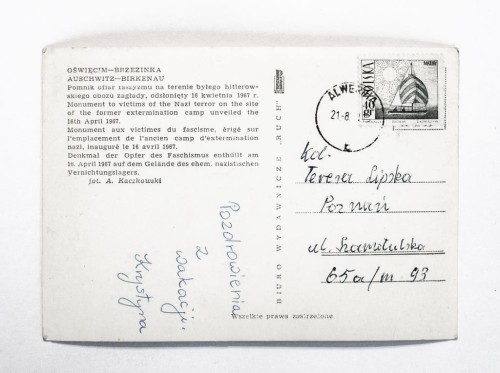 OŚWIĘCIM—BRZEZINKA
AUSCHWITZ—BIRKENAU
Pomnik ofiar faszyzmu na terenie byłego hitlerow-
skiego obozu zagłady, odsłonięty 16 kwietnia 1967 r.
Monument to victims of the Nazi terror on the site
of the former extermination camp unveiled the
16th April 1967.
Monument aux victimes du fascisme, érigé sur
l'emplacement de l'ancien camp d'extermination
nazi, inauguré le 16 avril 1967.
Denkmal der Opfer des Faschismus enthüllt am
16. April 1967 auf dem Gelände des ehem. nazistischen
Vernichtungslagers.
fot. A. Kaczkowski
Pozdrowienia
z
wakacji.
Krystyna
BIURO WYDAWNICZE „RUCH"
Wszelkie prawa zastrzeżone
POLSKA
40
21-8
Kol.
Teresa Lipska
Poznań
ul. Szamotulska
65a/m 93